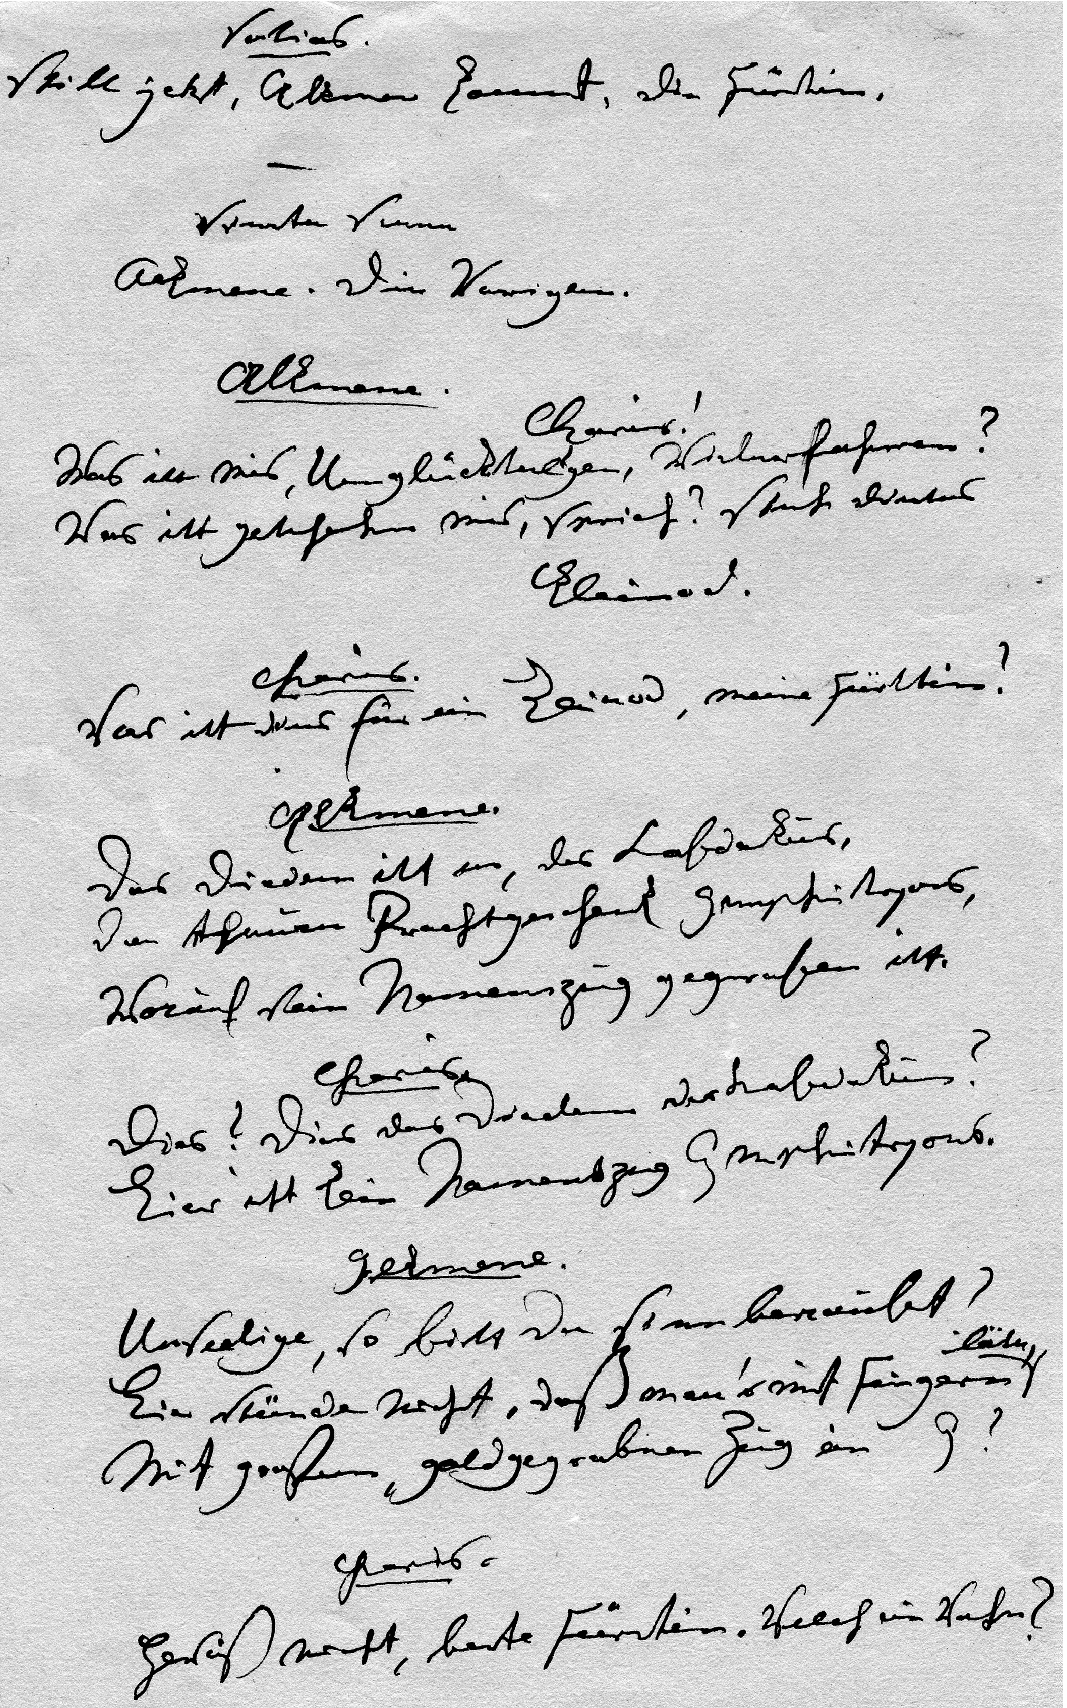 Sosias.
Still jetzt, Alkmene kommt, die Fürstin.
Vierte Szene
Alkmene. Die Vorigen.
Alkmene.
Charis!
Was ist mir, Unglücksel'gen, widerfahren?
Was ist geschehen mir, sprich? Sieh dieses
Kleinod.
Charis.
Was ist dies für ein Kleinod, meine Fürstin?
Alkmene.
Das Diadem ist es, des Labdakus,
Das theure Prachtgeschenk Amphitryons,
Worauf sein Namenszug gegraben ist.
Charis.
Dies? Dies das Diadem des Labdakus?
Hier ist kein Namenszug Amphitryons.
Alkmene.
Unselige, so bist du sinnberaubt?
Hier stünde nicht, daß man's mit Fingern läse,
Mit großem, goldgegrabnen Zug ein A?
Charis.
Gewiß nicht, beste Fürstin. Welch ein Wahn?